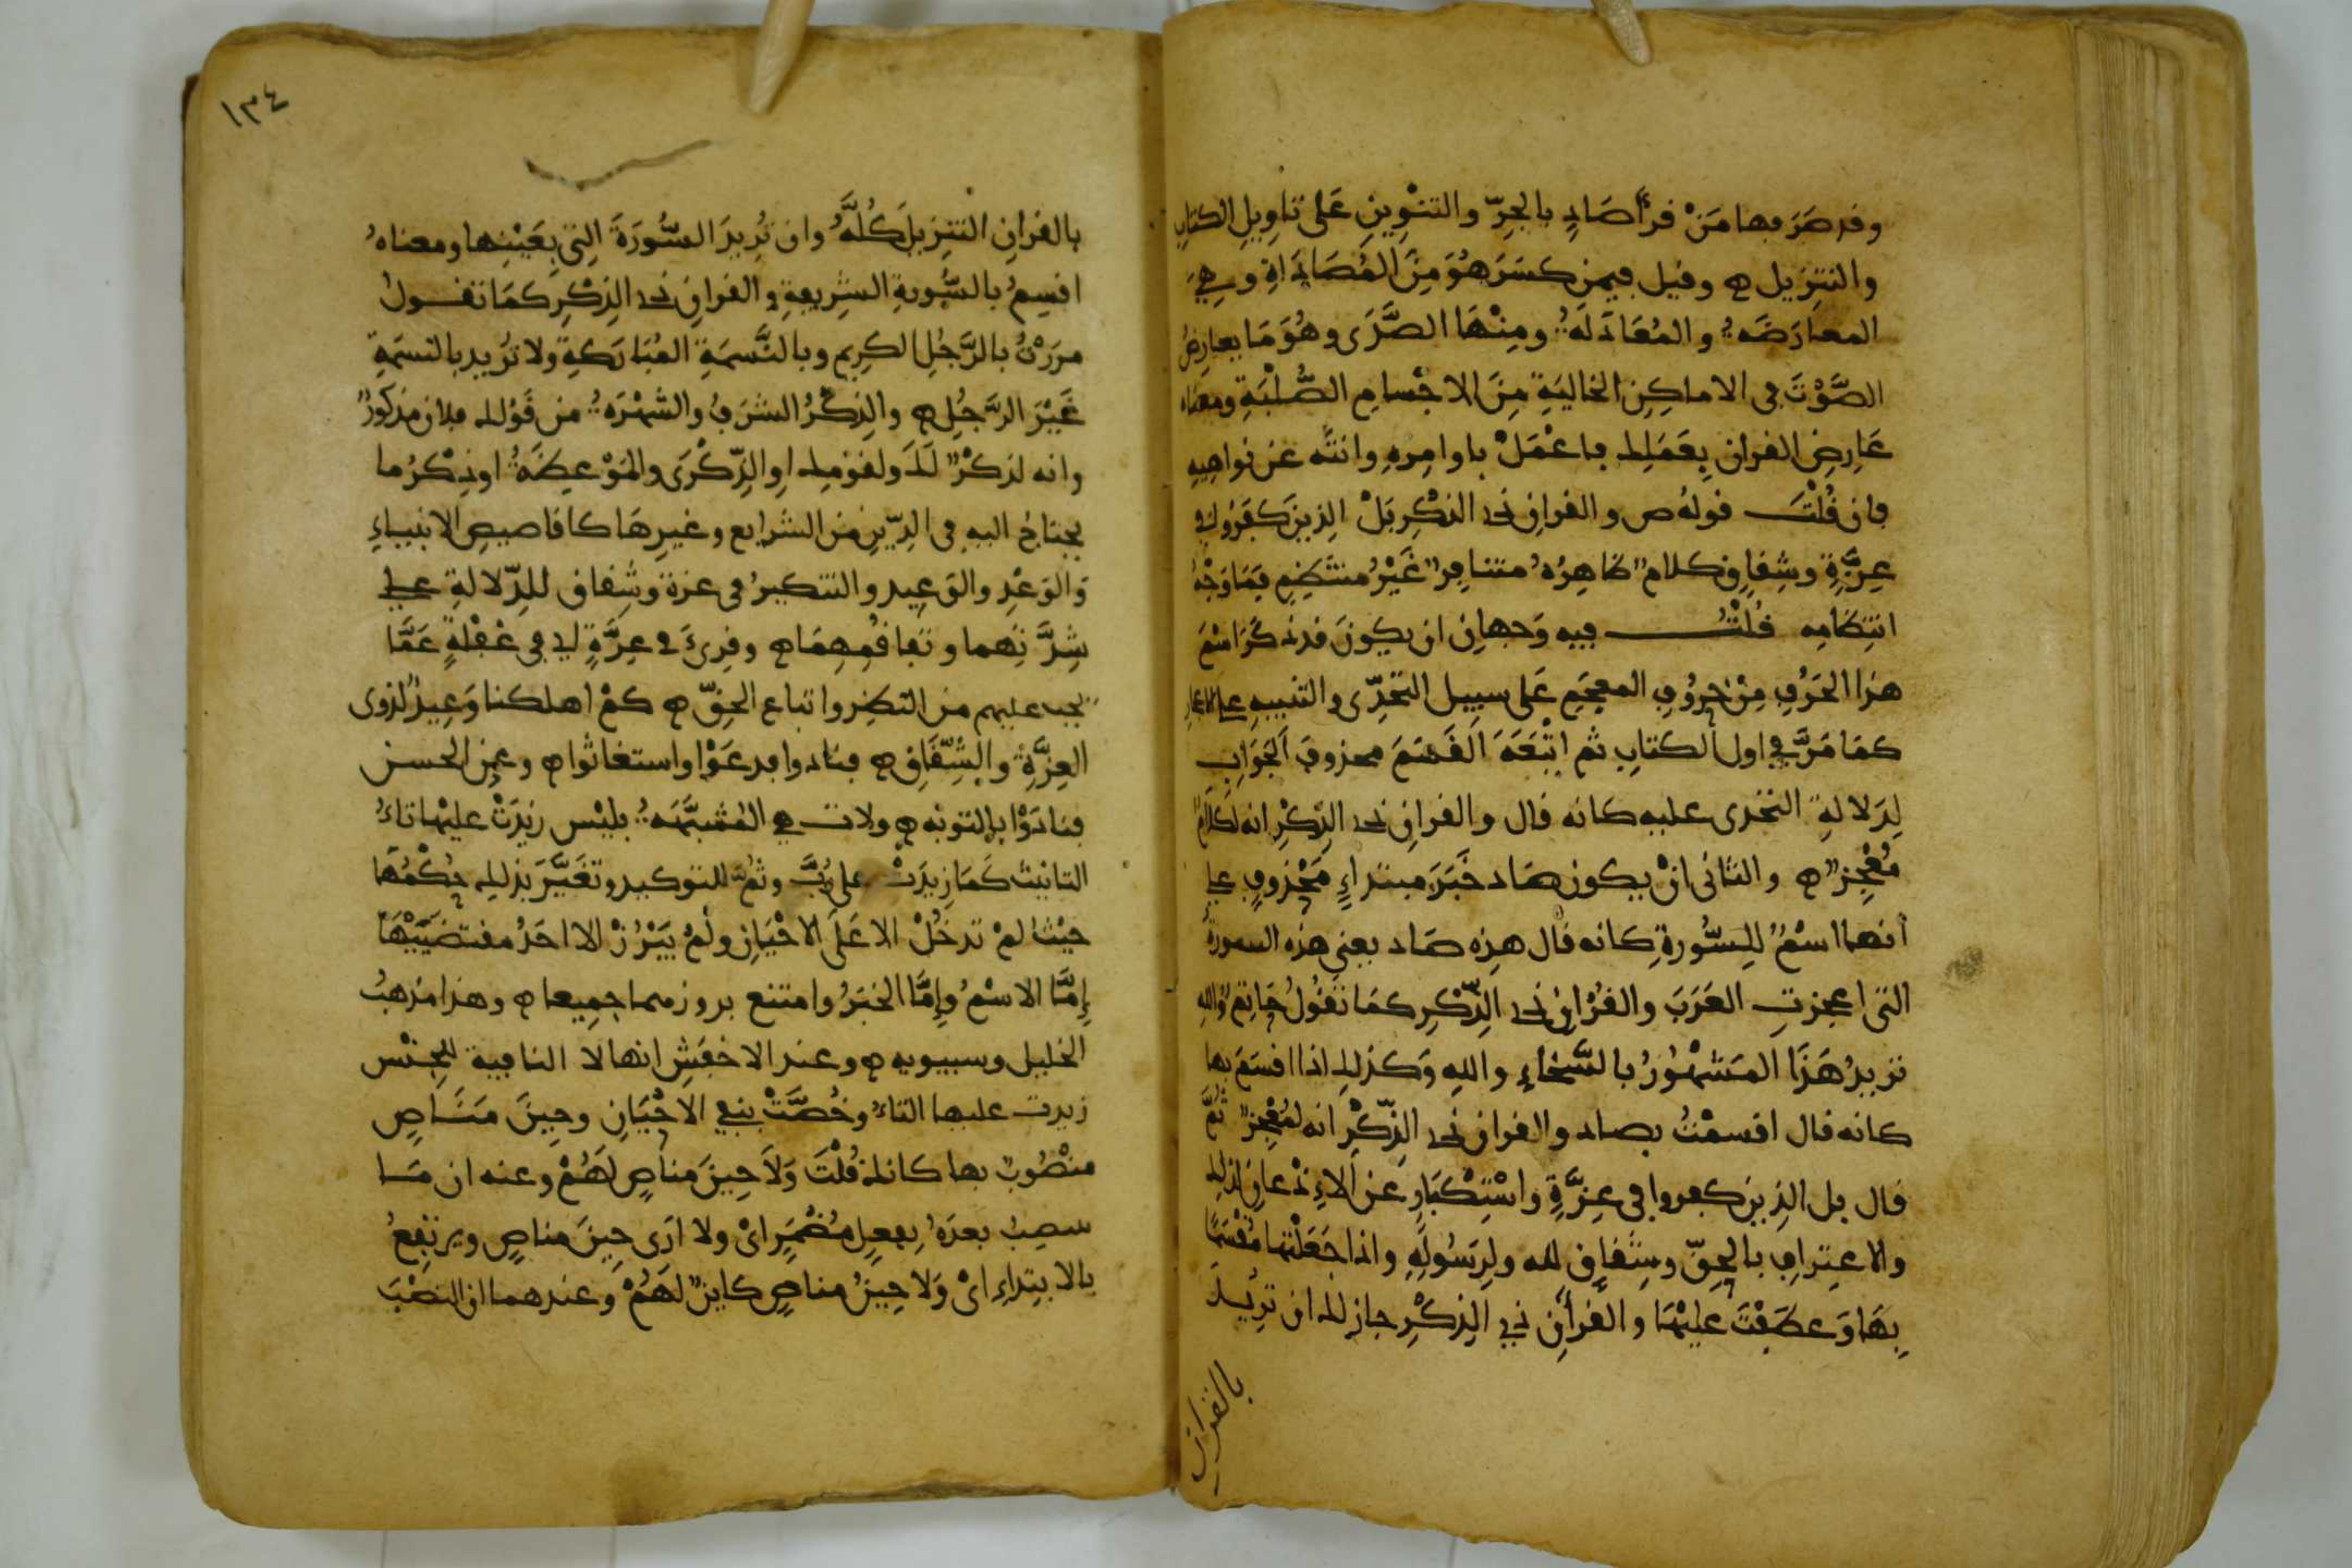 وقد صرفها من قرأ صادٍ بالجرّ والتنوين على تاويل الكتاب
والتنزيل وقيل فيمن كسر هو من المصاداة وهي
المعارضة والمعادلة ومنها الصدى وهو ما يعارض
الصوت في الاماكن الخالية من الاجسام الصلبة ومعناه
عارض القران بعملك فاعمل باوامره وانته عن نواهيه
فان قلت قوله ص والقران ذي الذكر بل الذين كفروا في
عزة وشقاق كلام ظاهره متنافر غير منتظم فما وجه
انتظامه قلت فيه وجهان ان يكون قد ذكر اسم
هذا الحرف من حروف المعجم على سبيل التحدّي والتنبيه على الاعجاز
كما مرّ في اول الكتاب ثم اتبعه القسم محذوف الجواب
لدلالة التحدي عليه كانه قال والقران ذي الذكر انه لكلام
معجز والثاني ان يكون صاد خبر مبتداء محذوف على
انها اسم للسّورة كانه قال هذه صاد يعني هذه السورة
التي اعجزت العرب والقران ذي الذّكر كما تقول هذا حاتم والله
تريد هذا المشهور بالسّخاء والله وكذلك اذا اقسم بها
كانه قال اقسمت بصاد والقران ذي الذّكر انه لمعجز ثمّ
قال بل الذين كفروا في عزّة واستكبار عن الاذعان لذلك
والاعتراف بالحقّ وشقاق لله ولرسوله واذا جعلتها مقسما
بها وعطفت عليها والقران ذي الذكر جاز لك ان تريد
بالقران
١٣٤
بالقران التنزيل كلّه وان تريد السّورة التي بعينها ومعناه
اقسم بالسّورة الشريفة والقران ذي الذكر كما تقول
مررت بالرّجل الكريم وبالنّسمة المباركة ولا تريد بالنسمة
غير الرّجل والذكر الشرف والشهرة من قولك فلان مذكور
وانه لذكر لك ولقومك او الذّكرى والموعظة او ذكر ما
يحتاج اليه في الدّين من الشرايع وغيرها كاقاصيص الانبياء
والوعد والوعيد والتنكير في عزة وشقاق للدّلالة على
شدّتهما وتفاقمهما وقرئ في غرّة اي في غفلة عمّا
يجب عليهم من النظر واتباع الحقّ كم اهلكنا وعيد لذوي
العزّة والشّقاق فنادوا فدعوا واستغاثوا وعن الحسن
فنادوا بالتوبة ولات هي المشبّهة بليس زيدت عليها تاء
التانيث كما زيدت على ربّ وثمّ للتوكيد وتغيّر بذلك حكمها
حيث لم تدخل الا على الاحيان ولم يبرز الا احد مقتضييها
إمّا الاسم وإمّا الخبر وامتنع بروزهما جميعا وهذا مذهب
الخليل وسيبويه وعند الاخفش انها لا النافية للجنس
زيدت عليها التاء وخصّت بنفي الاحيان وحين مناص
منصوب بها كانك قلت ولا حين مناص لهم وعنه ان ما
ينصب بعده بفعل مضمر اي ولا ارى حين مناص ويرتفع
بالابتداء اي ولا حين مناص كاين لهم وعندهما ان النصب